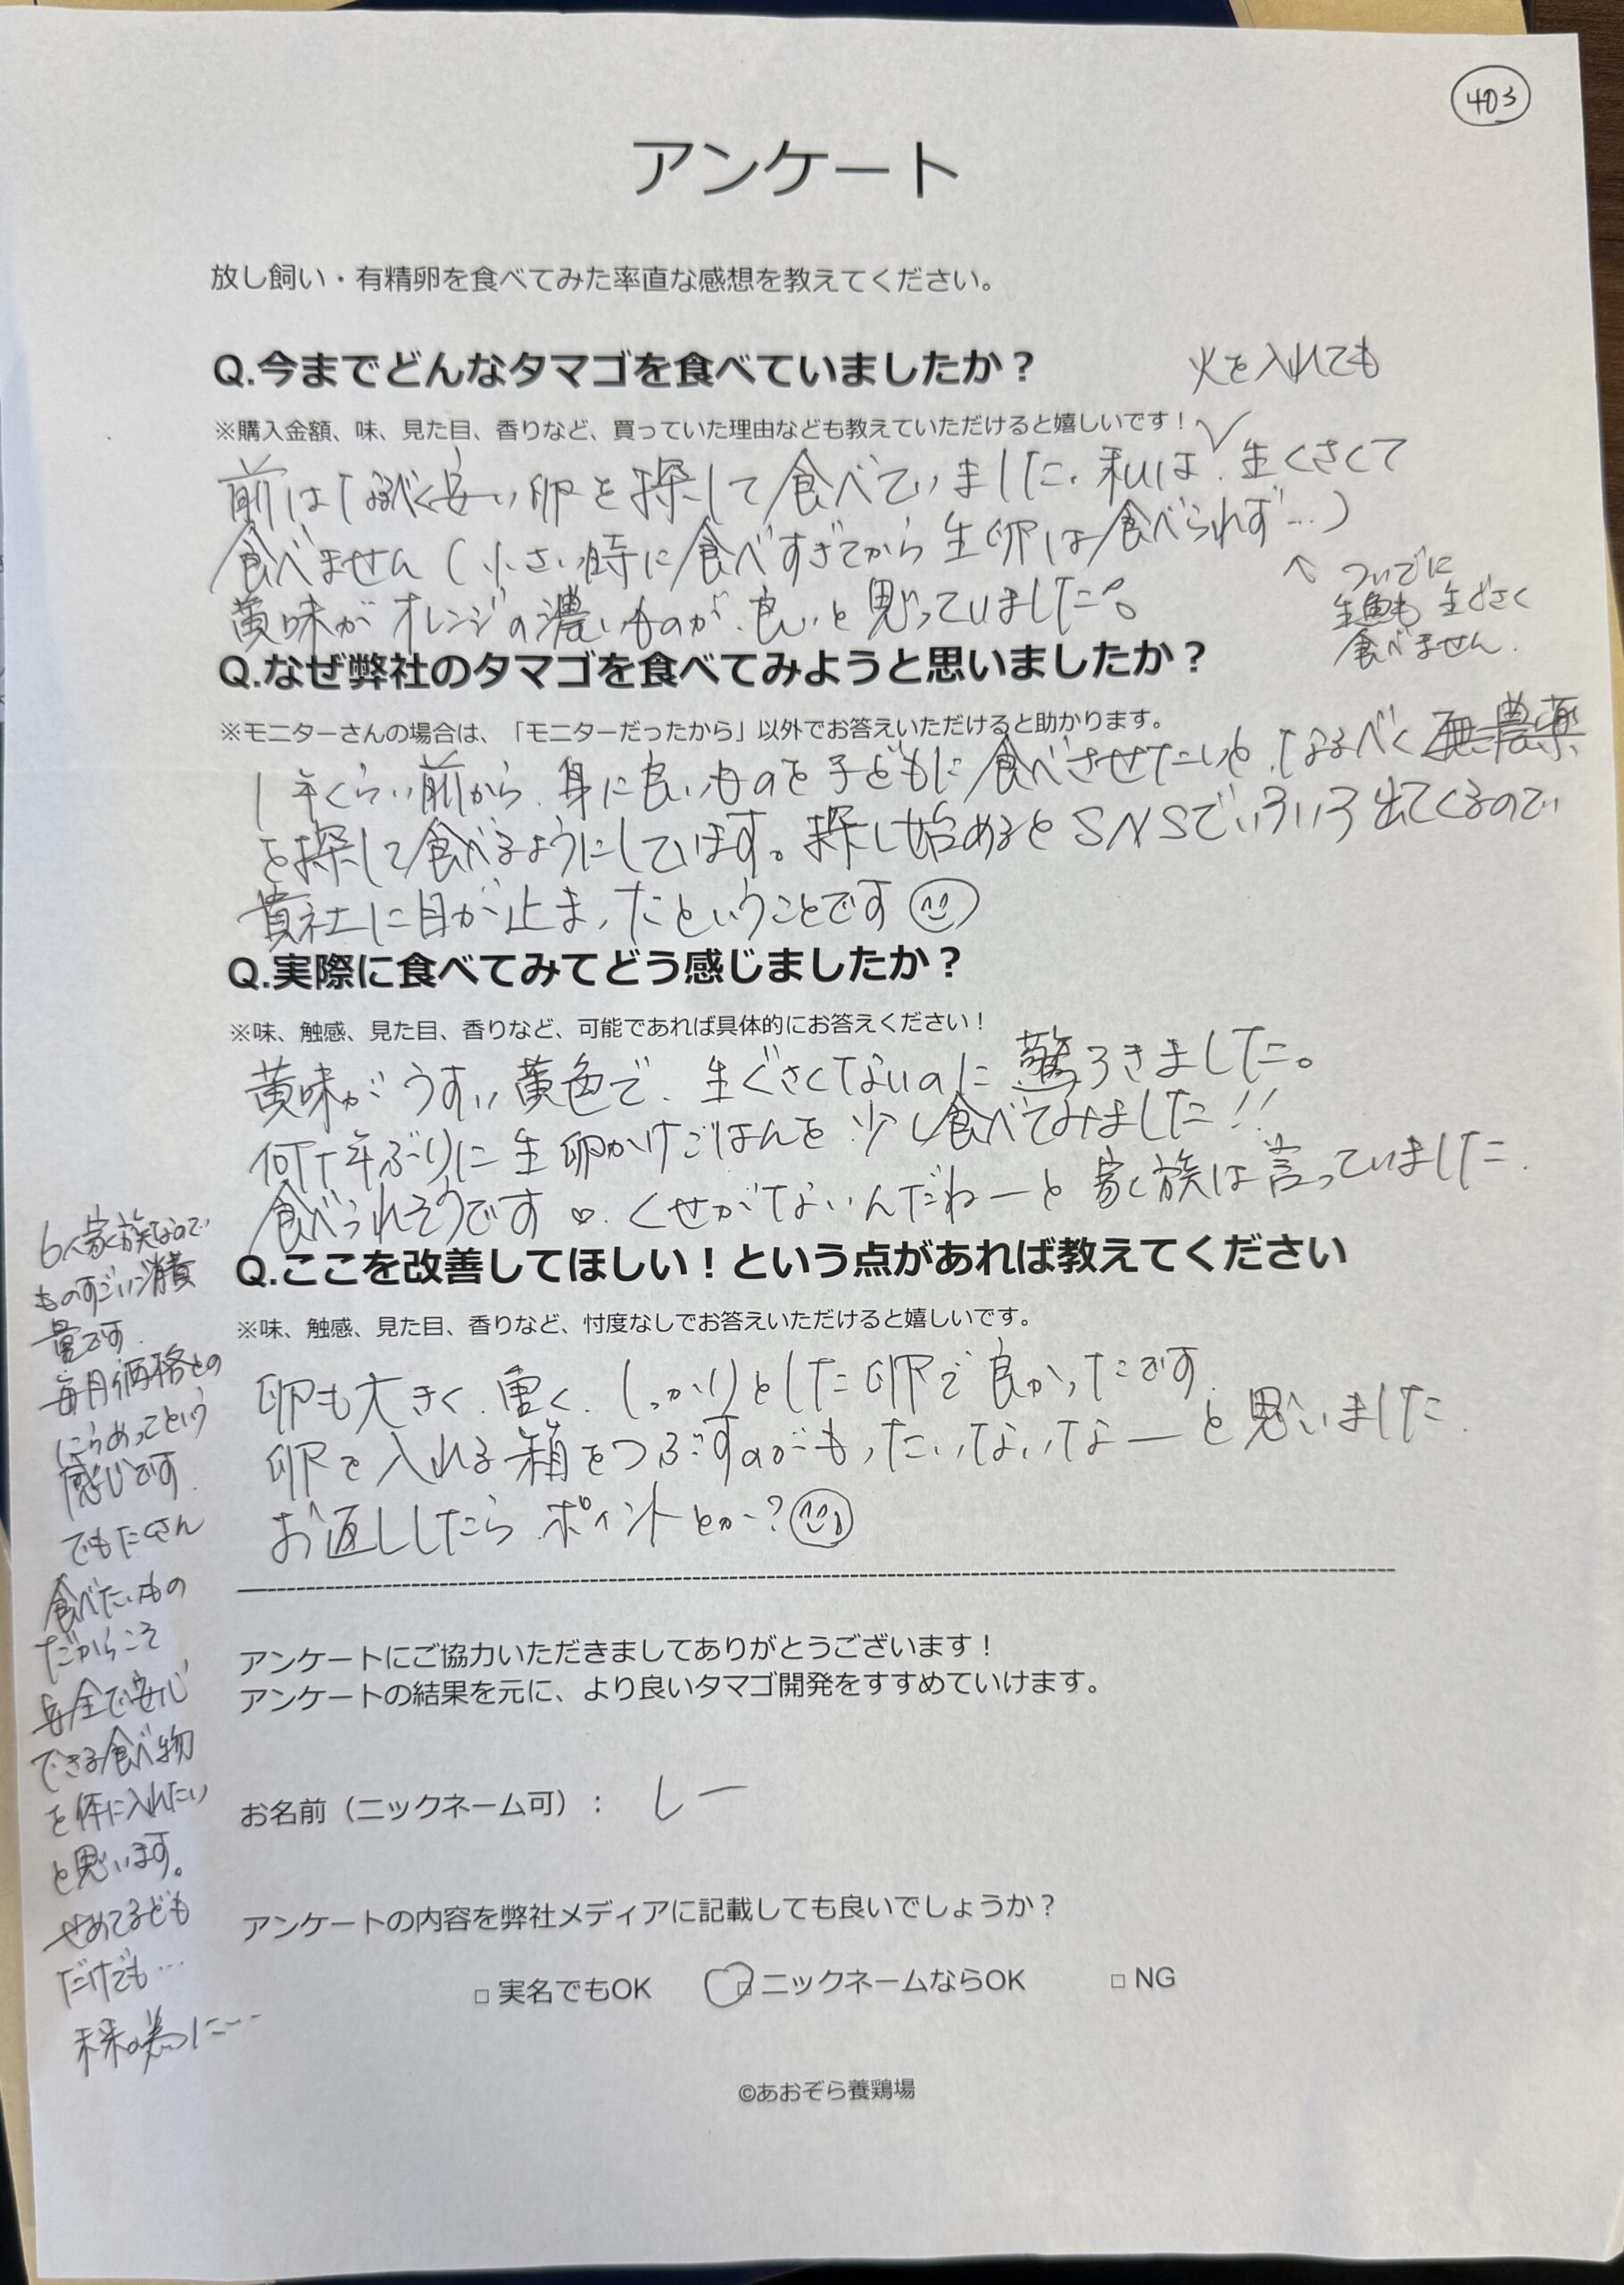 403
アンケート
放し飼い・有精卵を食べてみた率直な感想を教えてください。
Q.今までどんなタマゴを食べていましたか？
※購入金額、味、見た目、香りなど、買っていた理由なども教えていただけると嬉しいです！
火を入れても
前はなるべく安い卵を探して食べていました。私は✓生くさくて
食べません（小さい時に食べすぎてから生卵は食べられず…）
↑ついでに
生魚も生ぐさく
食べません.
黄味がオレンジの濃いものが良いと思っていました。
Q.なぜ弊社のタマゴを食べてみようと思いましたか？
※モニターさんの場合は、「モニターだったから」以外でお答えいただけると助かります。
1年くらい前から、身に良いものを子どもに食べさせたいと、なるべく無農薬
を探して食べるようにしています。探し始めるとSNSでいろいろ出てくるので
貴社に目が止まったということです
Q.実際に食べてみてどう感じましたか？
※味、触感、見た目、香りなど、可能であれば具体的にお答えください！
黄味がうすい黄色で、生ぐさくないのに驚ろきました。
何十年ぶりに生卵かけごはんを少し食べてみました!!
食べられそうです♡.くせがないんだねーと家族は言っていました.
Q.ここを改善してほしい！という点があれば教えてください
※味、触感、見た目、香りなど、忖度なしでお答えいただけると嬉しいです。
卵も大きく、重く、しっかりとした卵で良かったです.
卵を入れる箱をつぶすのがもったいないなーと思いました.
お返ししたらポイントとか？
6人家族なので
ものすごい消費
量です.
毎月価格との
にらめっこという
感じです.
でもたくさん
食べたいもの
だからこそ
安全で安心
できる食べ物
を体に入れたい
と思います。
せめて子ども
だけでも…
未来の為に…
アンケートにご協力いただきましてありがとうございます！
アンケートの結果を元に、より良いタマゴ開発をすすめていけます。
お名前（ニックネーム可）： しー
アンケートの内容を弊社メディアに記載しても良いでしょうか？
□ 実名でもOK □ ニックネームならOK □ NG
©あおぞら養鶏場